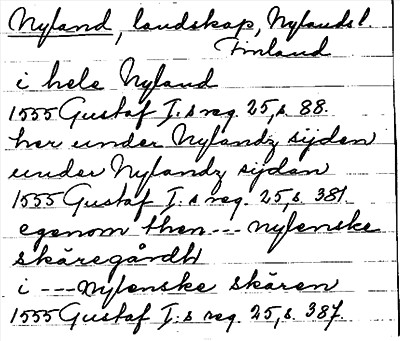 Nyland, landskap, Nylands l.
Finland
i hele Nyland
1555 Gustaf I:s reg. 25, s. 88.
her under Nylandz sijden
under Nylandz sijden
1555 Gustaf I:s reg. 25, s. 381.
egenom then --- nylenske
skäregårdh
i --- Nylenske skären
1555 Gustaf I:s reg. 25, s. 387.